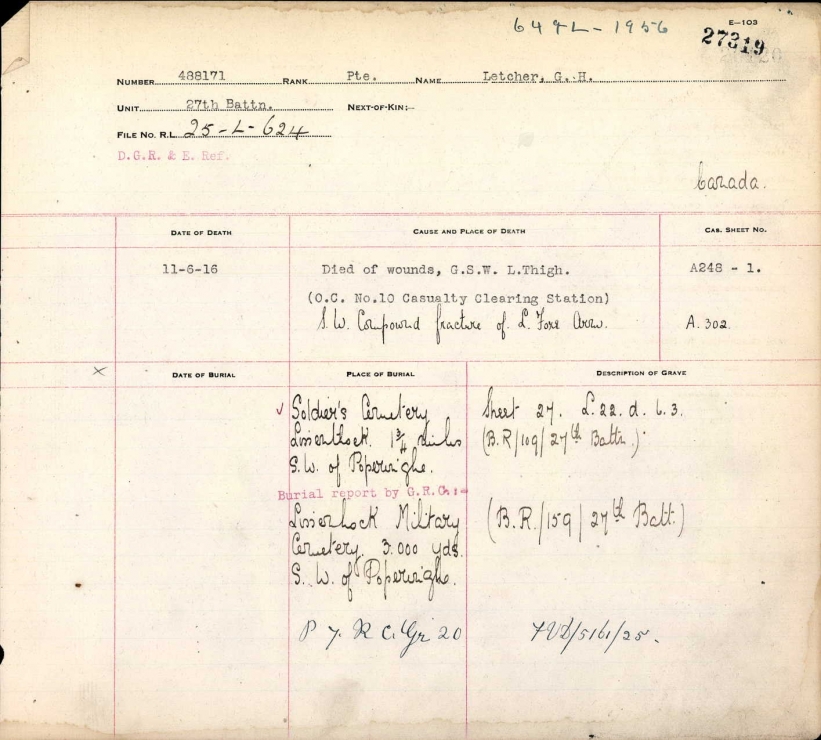 649L-1956
E-103
27319
NUMBER 488171 RANK Pte. NAME Letcher, G. H.
UNIT 27th Battn. NEXT-OF-KIN:-
FILE NO. R.L. 25-L-624
D.G.R. & E. Ref.
Canada.
DATE OF DEATH CAUSE AND PLACE OF DEATH CAS. SHEET NO.
11-6-16 Died of wounds, G.S.W. L.Thigh. A248 - 1.
(O.C. No.10 Casualty Clearing Station)
S.W. Compound fracture of L. Fore Arm. A.302.
x DATE OF BURIAL PLACE OF BURIAL DESCRIPTION OF GRAVE
✓ Soldier's Cemetery Sheet 27. L.22.d. 6.3.
1¾ miles (B.R/109/27th Battn.)
S.W. of Poperinghe.
Burial report by G.R.C.:-
Lissenhock Military (B.R./159/27th Batt.)
Cemetery. 3.000 yds.
S.W. of Poperinghe.
R C. Gr 20